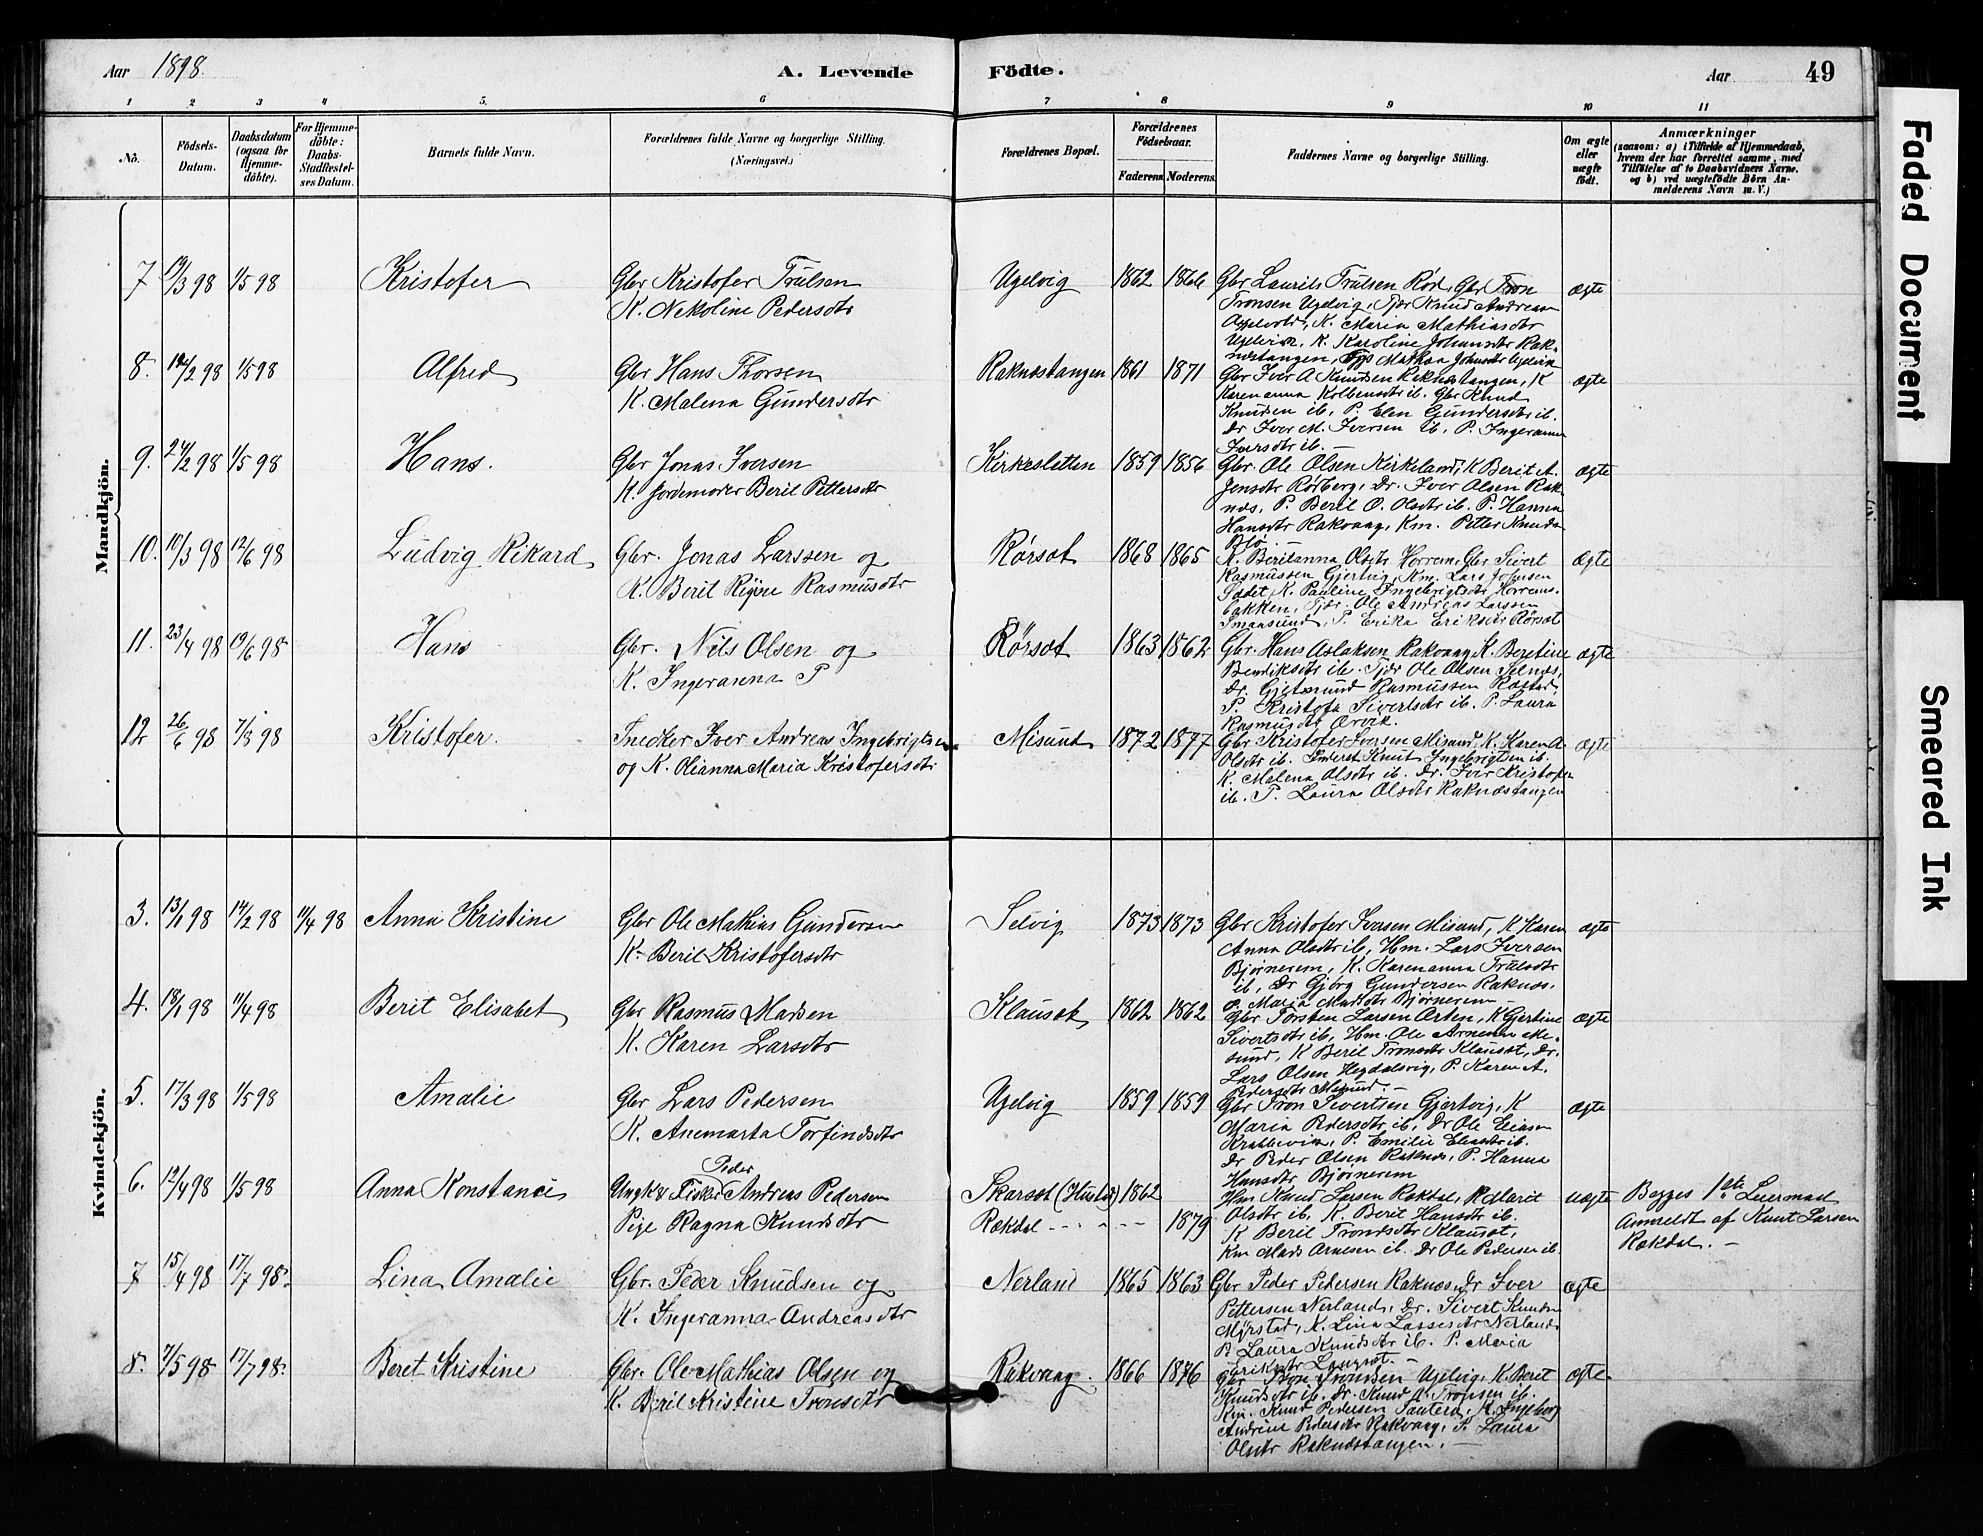 Aar 1898.
A. Levende
Födte.
Aar
49
1 2 3 4 5. 6 7 8 9 10 11
No.
Födsels-Datum.
Daabsdatum (ogsaa for Hjemme-döbte).
For Hjemme-döbte: Daabs-Stadfestel-ses Datum.
Barnets fulde Navn.
Forældrenes fulde Navne og borgerlige Stilling.
(Næringsvei.)
Forældrenes Bopæl.
Forældrenes Födselsaar.
Faderens Moderens
Faddernes Navne og borgerlige Stilling.
Om ægte eller uægte födt.
Anmærkninger
(saasom: a) i Tilfælde af Hjemmedaab,
hvem der har forrettet samme, med
Tilföielse af to Daabsvidners Navne.
og b) ved uægtefödte Börn An-
melderens Navn m. V.)
Mandkjön.
7 19/3 98 1/5 98 Kristofer Gbr Kristofer Trulsen Ugelvig 1862 1866 Gbr Laurits Trulsen Rød, Gbr Tron ægte
K. Nekoline Pedersdtr
Tronsen Ugelvig, Tjar Knud Andreas
K. Maria Mathiasdtr
Ugelvig, K. Karoline Johansdtr Rak-
næstangen,
8. 12/2 98 1/5 98 Alfred Gbr Hans Thorsen Raknæstangen 1861 1871 Gbr Iver A Knudsen Raknæstangen, K ægte
K. Malena Gundersdtr
Karenanna Kolbensdtr ib. Gbr Knud
Knudsen ib, P. Elen Gundersdtr ib.
Dr Iver M. Iversen ib, P. Ingeranna
Iversdtr ib.
9. 24/2 98 1/5 98 Hans. Gbr Jonas Iversen Kirkesletten 1859 1856 Gbr. Ole Olsen Kirkeland, K Berit A. ægte
K. Jordemoder Beril Pettersdtr
Jensdtr Rørberg, Dr. Iver Olsen Rak-
næs, P. Beril O. Olsdtr ib. P. Hanna
Hansdtr Rakvaag, Km. Petter Knuds
10. 10/3 98 12/6 98 Ludvig Rikard Gbr. Jonas Larssen og Rørsæt 1868 1865 K. Beritanna Olsdtr Horrem, Gbr Sivert ægte
K. Beril Rasmusdtr
Rasmussen Gjertvig, Km. Lars Johnsen
Sædet, K. Pauline Ingebrigtsdtr Horrems-
bakken, Tjar. Ole Andreas Larssen
Smaasund, P. Erika Eriksdtr Rørsæt
11. 23/4 98 19/6 98 Hans Gbr. Nils Olsen og Rørsæt 1863 1862 Gbr. Hans Aslaksen Rakvaag K. Beretine ægte
K. Ingeranna P
Bendiksdtr ib. Tjar Ole Olsen Solnæs,
Dr. Gjetmund Rasmussen Røstad,
P. Kristofa Sivertsdtr ib. P. Laura
Rasmusdtr Ørvik.
12 26/6 98 7/8 98 Kristofer. Snedker Iver Andreas Ingebrigtsen Misund 1872 1877 Gbr Kristofer Iversen Misund, K. Karen A. ægte
og K. Olianna Maria Kristofersdtr
Olsdtr ib. Inderst Knut Ingebrigtsen ib.
K. Malena Olsdtr ib. Dr. Iver Kristofer
ib. P. Laura Olsdtr Raknæstangen
Kvindekjön.
3. 13/1 98 14/2 98 11/4 98 Anna Kristine Gbr Ole Mathias Gundersen Selvig 1873 1873 Gbr Kristofer Iversen Misund, K Karen ægte
K. Beril Kristofersdtr
Anna Olsdtr ib, Hm. Lars Iversen
Bjørnerem, K. Karenanna Trulsdtr
ib, Dr Gjørg Gundersen Raknæs.
P. Maria Madsdtr Bjørnerem
4. 18/1 98 11/4 98 Berit Elisabet Gbr Rasmus Madsen Klausæt 1862 1862 Gbr Torsten Larsen Orten, K Gjertine ægte
K. Karen Larsdtr
Sivertsdtr ib, Hm. Ole Arnesen Mi-
sund, K Beril Tronsdtr Klausæt, Dr.
Lars Olsen Hegdalsvig, P. Karen A.
Pedersdtr Misund.
5. 17/3 98 1/5 98 Amalie Gbr Lars Pedersen Ugelvig 1859 1859 Gbr Tron Sivertsen Gjertvig, K ægte
K. Anemarta Torfindsdtr
Maria Pedersdtr ib, Dr Ole Eliasen
Krabbevik, P. Emilie Eliasdtr ib.
Dr Peder Olsen Raknæs, P. Hanna
Hansdtr Bjørnerem
6. 12/4 98 1/5 98 Anna Konstance Ungk & Fisker Peder Andreas Pedersen Skarsæt (Hustad) 1862 Hm Knud Larsen Rækdal, K Marit uægte Begges 1ste Leiermaal
Pige Ragna Knudsdtr Rækdal 1879
Olsdtr ib, K. Berit Hansdtr ib.
K Beril Trondsdtr Klausæt,
Km Mads Arnesen ib. Dr Ole Pedersen ib.
Anmeldt af Knut Larsen
Rækdal.
7 15/4 98 17/7 98. Lina Amalie Gbr. Peder Knudsen og Nerland 1865 1863 Gbr Peder Pedersen Raknæs, Dr Iver ægte
K. Ingeranna Andreasdtr
Pettersen Nerland, Dr. Sivert Knudsen
Mørstad, K. Lina Lassesdtr Nerland
P. Laura Knudsdtr ib. P. Maria
Eriksdtr Langsæt.
8. 7/5 98 17/7 98. Beret Kristine Gbr. Ole Mathias Olsen og Rakvaag. 1866 1876 Gbr Tron Trondsen Ugelvig. K. Beret ægte.
K. Beril Kristine Tronsdtr
Knudsdtr ib. Dr. Knud A. Tronsen ib.
Km. Knud Pedersen Tautera, K. Ingeborg
Andrine Pedersdtr Rakvaag, P. Laura
Olsdtr Raknæstangen.
Faded Document
Smeared Ink